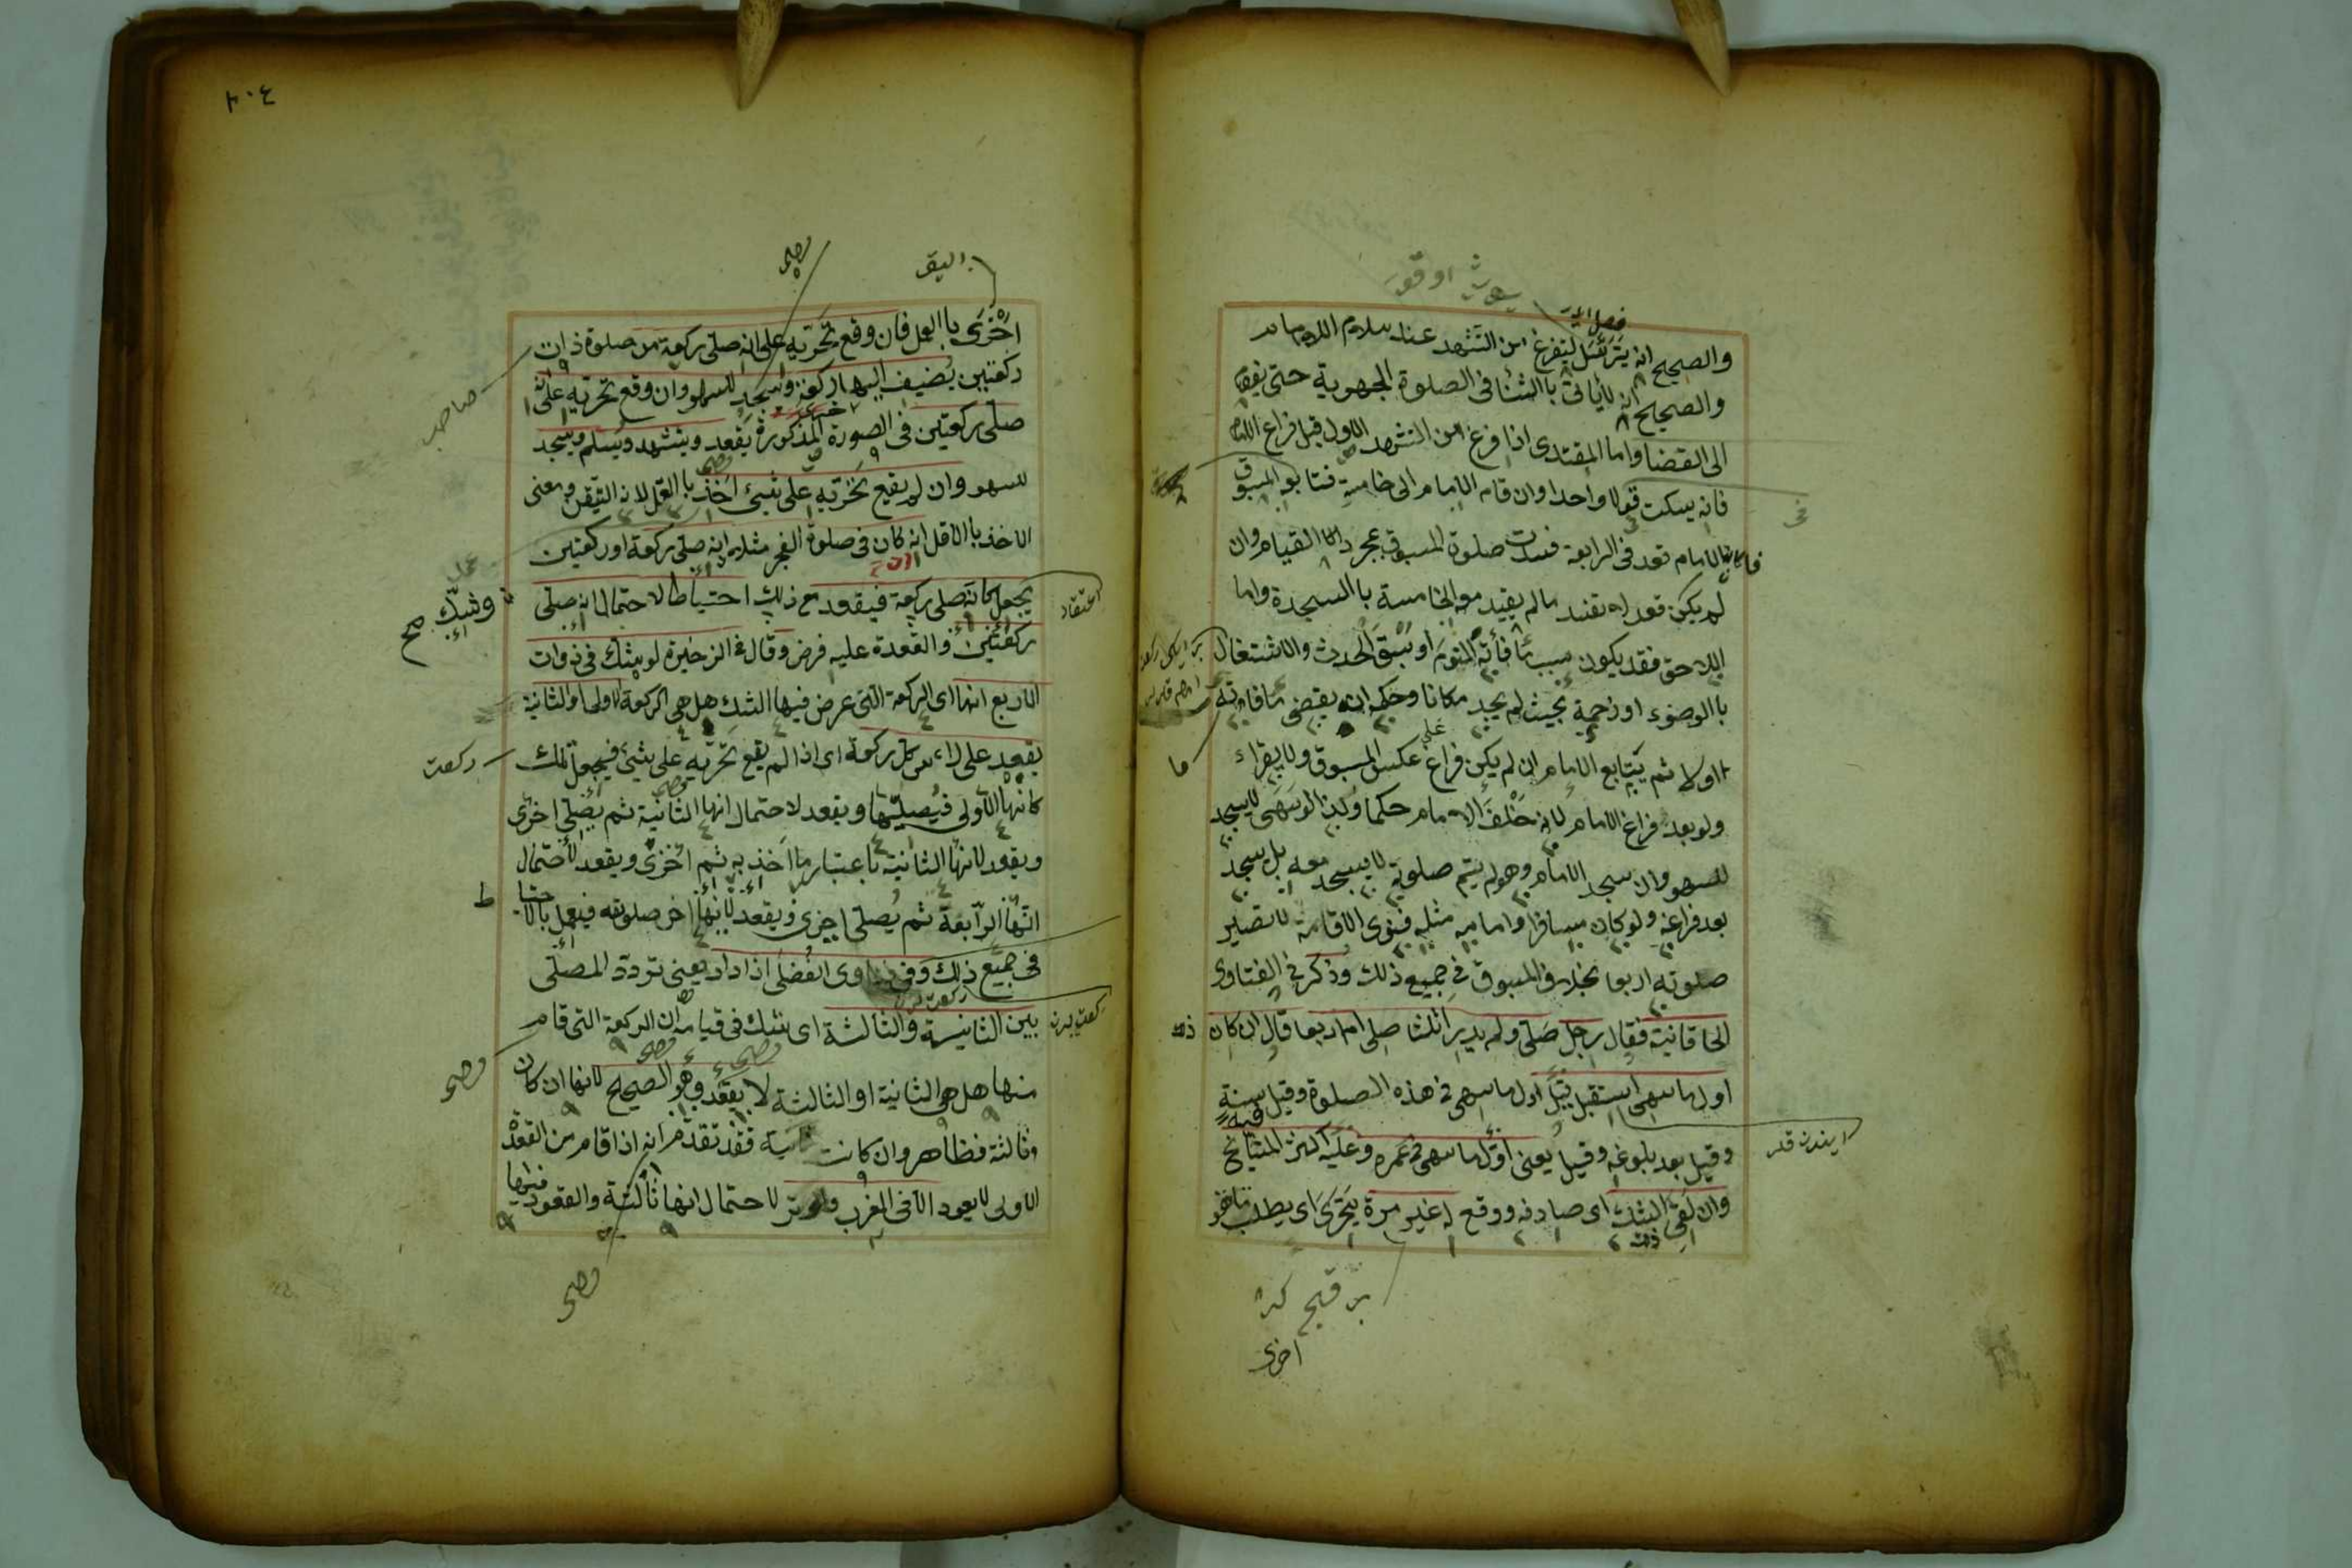 والصحيح انه يترسل ليفرغ من التشهد عند سلام الامام
والصحيح انه لا ياتى باالثنا فى الصلوة الجهرية حتى يقوم
الى القضا واما المقتدى اذا فرغ من التشهد الاول قبل فراغ الامام
فانه يسكت قولا واحدا وان قام الامام الى خامسة فتابعه المسبوق
فان كان الامام قعد فى الرابعة فسدت صلوة المسبوق بمجرد القيام وان
لم يكن قعد لا تفسد مالم يقيد مع الخامسة باالسجدة واما
اللاحق فقد يكون سبب ما فاته النوم او سبق الحدث والاشتغال
باالوضوء او زحمة بحيث لم يجد مكانا وحكمه انه يقضى ما فاته
اولا ثم يتابع الامام ان لم يكن فراغ عكس المسبوق ولا يقراء
ولو بعد فراغ الامام لانه خلف الامام حكما وكذا لو سهى لا يسجد
للسهو وان سجد الامام وهو لم يتم صلوته لا يسجد معه بل يسجد
بعد فراغه ولو كان مسافرا وامامه مثله فنوى الاقامة لا تصير
صلوته اربعا بخلاف المسبوق فى جميع ذلك وذكر فى الفتاوى
الخاقانية فقال رجل صلى ولم يدر اثلثا صلى ام اربعا قال ان كان
اول ما سهى استقبل قيل اول ما سهى فى هذه الصلوة وقيل سنة
وقيل بعد بلوغه وقيل يعنى اول ما سهى فى عمره وعليه اكثر المشايخ
وان لقى الشك اى صادفه ووقع له غير مرة يتحرى اى يطلب
اخرى
٢٠٤
اخرى باالعمل فان وقع تحريه على انه صلى ركعة من صلوة ذات
ركعتين يضيف اليها ركعة واسجد للسهو وان وقع تحريه على انه
صلى ركعتين فى الصورة المذكورة يقعد ويتشهد ويسلم ويسجد
للسهو وان لم يقع تحريه على شيئ اخذ باالاقل لانه التيقن ومعنى
الاخذ باالاقل انه كان فى صلوة الفجر مثلا انه صلى ركعة او ركعتين
وشك صح
يجعل كانه صلى ركعة فيقعد مع ذلك احتياطا لاحتمال انه صلى
اعتقاد
ركعتين والقعدة عليه فرض وقال فى الزخيرة لو شك فى ذوات
الاربع انها اى الركعة التى عرض فيها الشك هل هى الركعة الاولى او الثانية
يقعد على راءس كل ركعة اى اذا لم يقع تحريه على شيئ فيجعل تلك
ركعت
كانها الاولى فيصليها ويقعد لاحتمال انها الثانية ثم يصلى اخرى
ويقعد لانها الثانية باعتبار ما اخذ به ثم اخرى ويقعد لاحتمال
انها الرابعة ثم يصلى اخرى ويقعد لانها اخر صلوته فيعمل
فى جميع ذلك وفى فتاوى الفضلى اذا دار يعنى تردد المصلى
بين الثانية والثالثة اى شك فى قيامه ان الركعة التى قام
منها هل هى الثانية او الثالثة لا يقعد وهو الصحيح لانها ان كان
وثالثة فظاهر وان كانت ثانية فقد تقدم انه اذا قام من القعدة
الاولى لا يعود الا فى المغرب والوتر لاحتمال انها ثالثة والقعود فيها